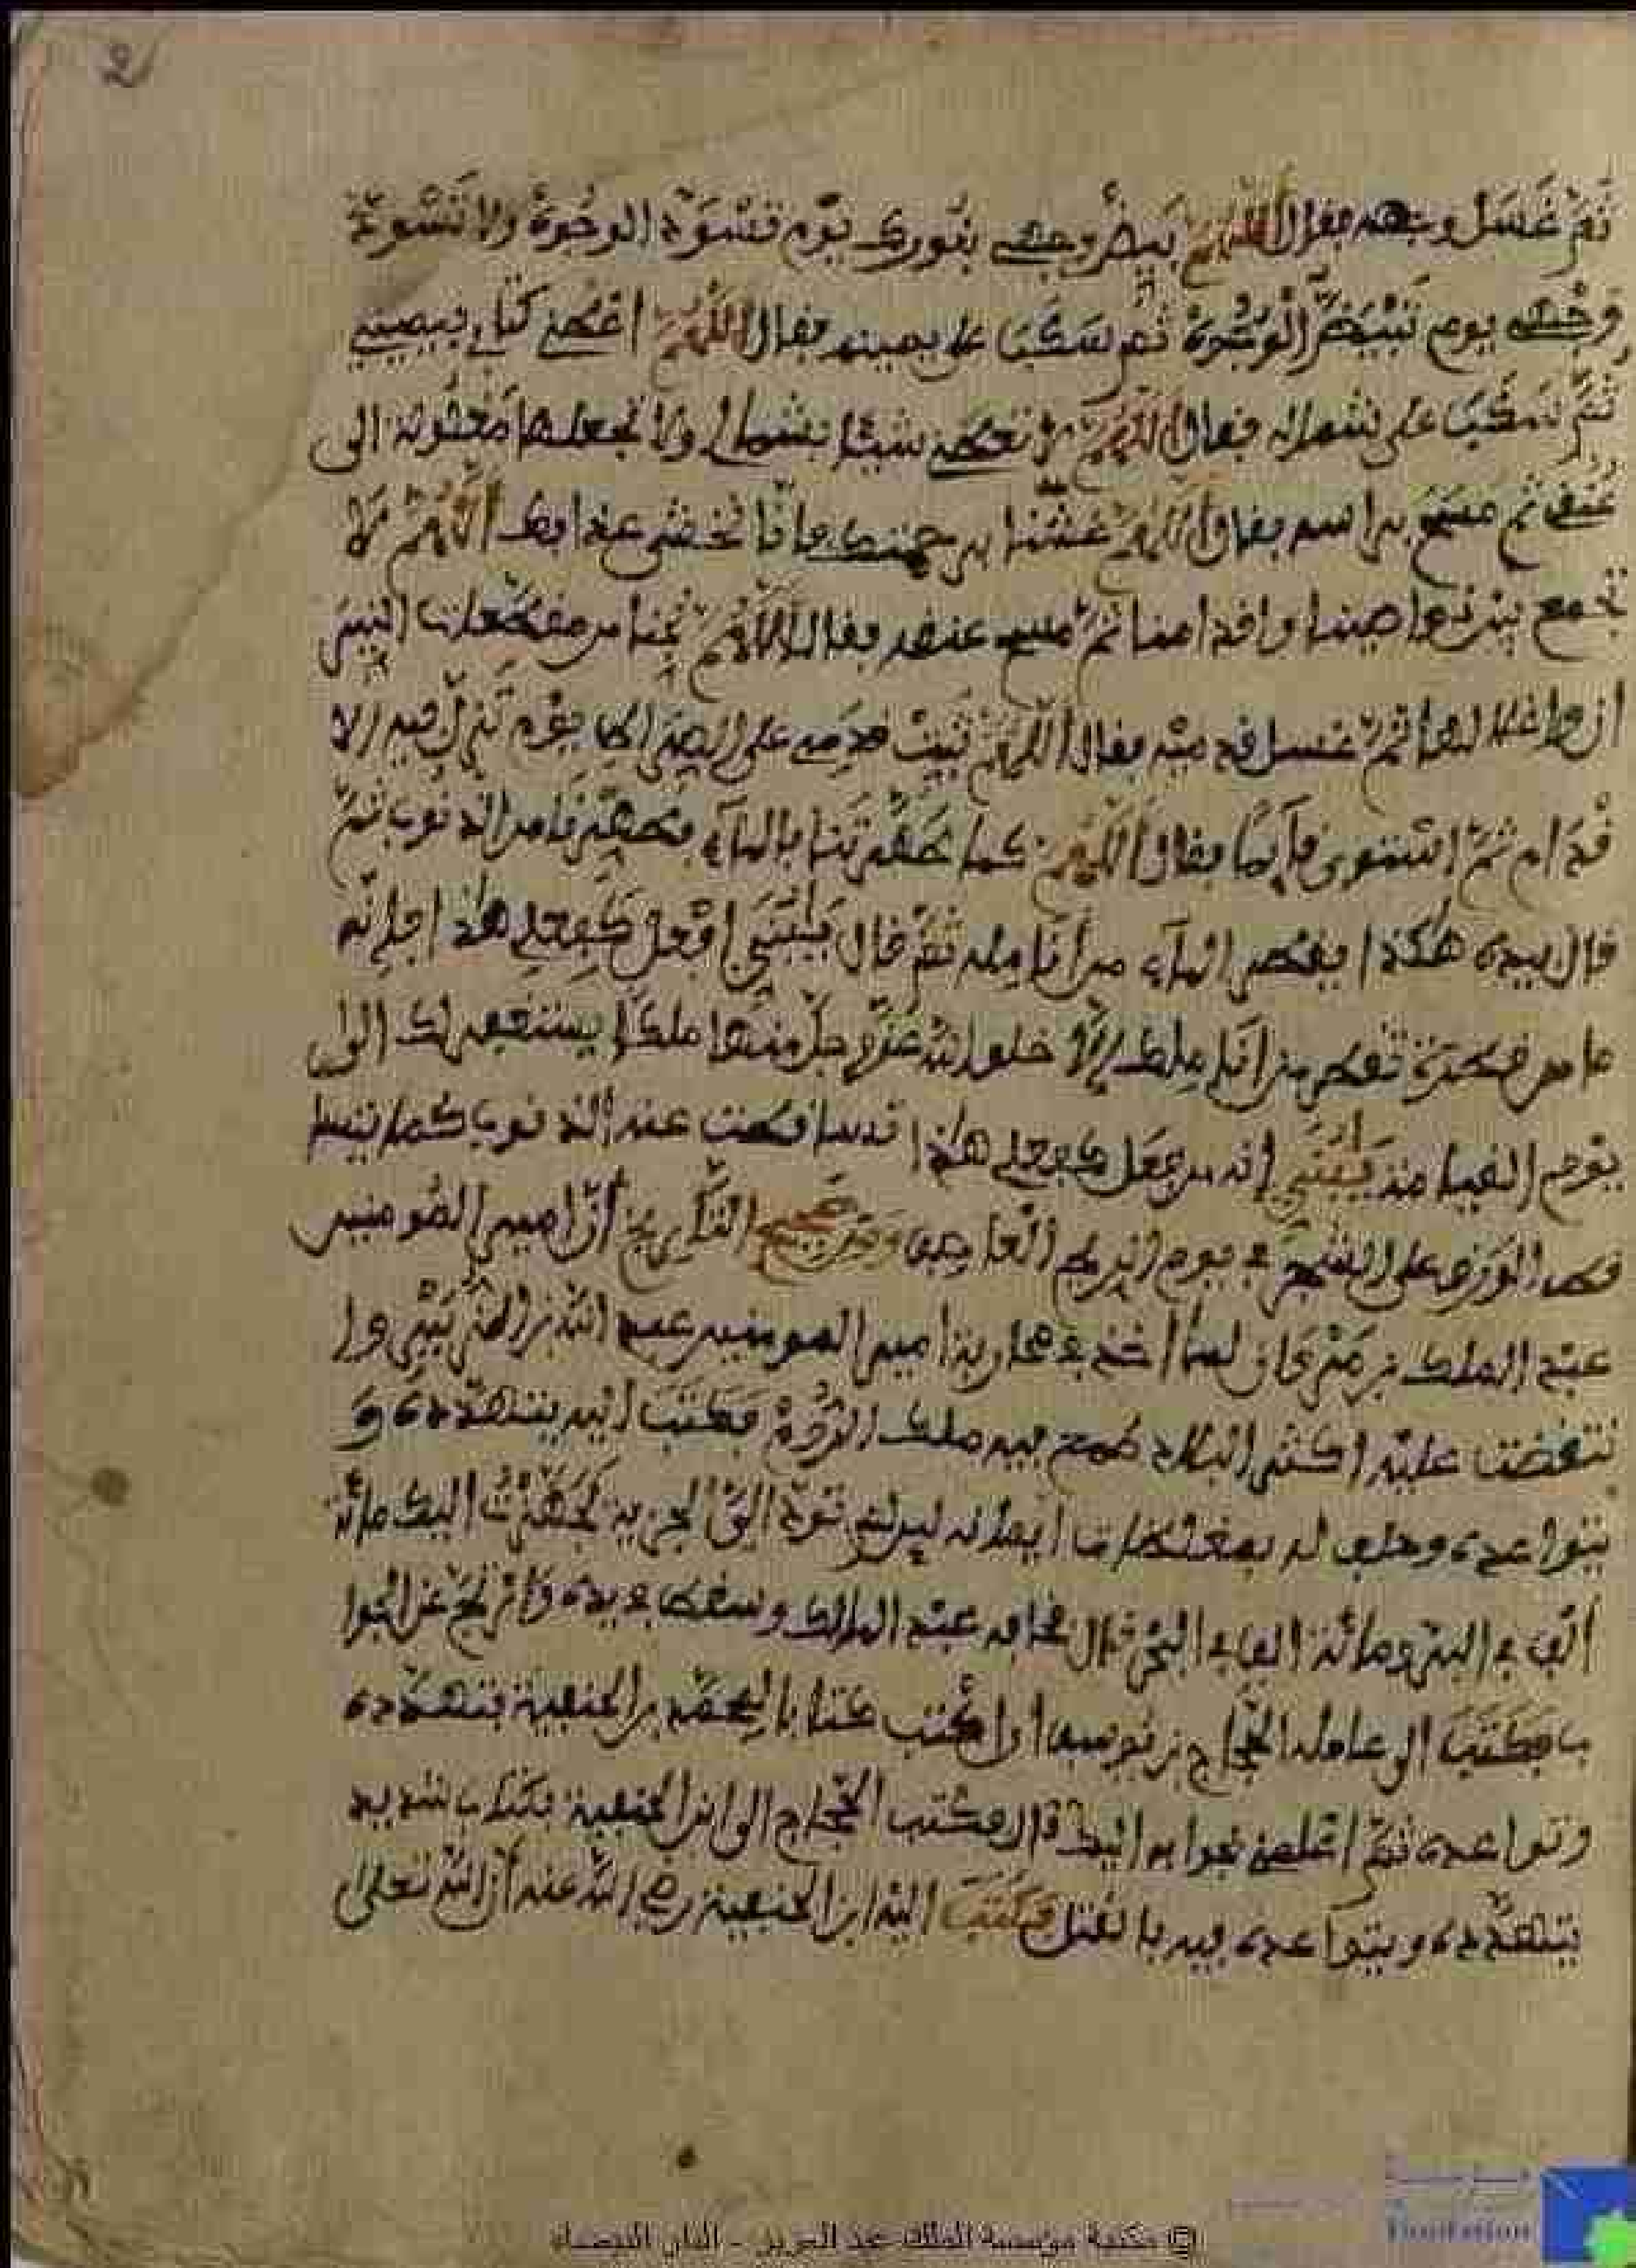 2
ثم غسل وجهه فقال اللهم بيض وجهي بنورك يوم تسود الوجوه ولا تسود
وجهي يوم تبيض الوجوه ثم سكب على يمينه فقال اللهم اعطني كتابي بيميني
ثم سكب على شماله فقال اللهم لا تعطني بشمالي ولا تجعلها مغلولة الى
عنقي ثم مسح براسه فقال اللهم غشنا برحمتك فانا نخشى عذابك اللهم لا
تجمع بين نواصينا واقدامنا ثم مسح عنقه فقال اللهم نجنا من مقطعات النيران
واغلالها ثم غسل قدميه فقال اللهم ثبت قدمي على الصراط يوم تزل فيه الا
قدام ثم استوى قائما فقال اللهم كما طهرتنا بالماء فطهرنا من الذنوب ثم
قال بيده هكذا يقطر الماء من انامله ثم قال يا بني افعل كفعلي هذا فانه
ما من قطرة تقطر من اناملك الا خلق الله عز وجل منها ملكا يستغفر لك الى
يوم القيامة يا بني انه من فعل كفعلي هذا تساقطت عنه الذنوب كما يتسا
قط الورق على الشجر في يوم الريح العاصف التاريخ ان امير المومنين
عبد الملك بن مروان لما اخذ في محاربة امير المومنين عبد الله بن الزبير وا
نتقضت عليه اكثر البلاد طمع فيه ملك الروم فكتب اليه يتهدده و
يتواعده وحلف له ايمانه لين لم تود الي الجزية لجهزت اليك مائة
الف في البر ومائة الف في البحر قال فخافه عبد الملك وسقط في يده ولم ينجح
ب فكتب الى عامله الحجاج بن يوسف ان اكتب كتابا لمحمد بن الحنفية تتهدده
وتواعده ثم اعلمني بجوابه اليك قال فكتب الحجاج الى ابن الحنفية بكتاب شديد
يتهدده ويتواعده فيه بالقتل فكتب اليه ابن الحنفية رضي الله عنه ان لله تعالى
© مكتبة مؤسسة الملك عبد العزيز - الدار البيضاء
مؤسسة
Fondation